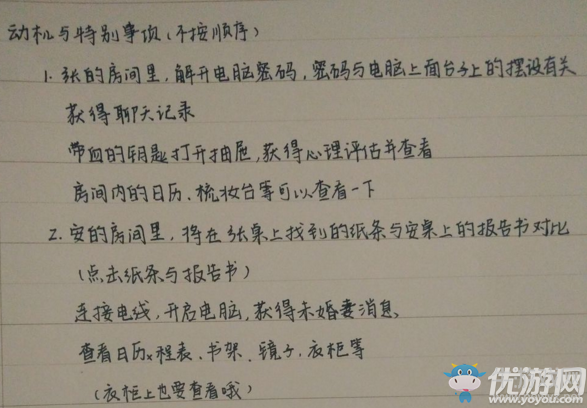 动机与特别事项(不按顺序)
1. 张的房间里,解开电脑密码,密码与电脑上面台子上的摆设有关
获得聊天记录
带血的钥匙打开抽屉,获得心理评估并查看
房间内的日历、梳妆台等可以查看一下
2. 安的房间里,将在张桌上找到的纸条与安桌上的报告书对比
(点击纸条与报告书)
连接电线,开启电脑,获得未婚妻消息
查看日历、程表、书架、镜子、衣柜等
(衣柜上也要查看哦)
优游网
www.yoyou.com